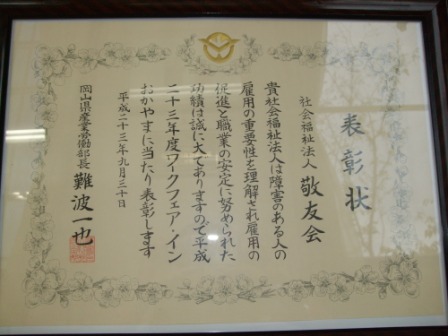 表彰状
社会福祉法人 敬友会
貴社会福祉法人は障害のある人の
雇用の重要性を理解され雇用の
促進と職業の安定に努められた
功績は誠に大でありますので平成
二十三年度ワークフェア・イン
おかやまに当たり表彰します
平成二十三年九月三十日
岡山県産業労働部長 難波一也